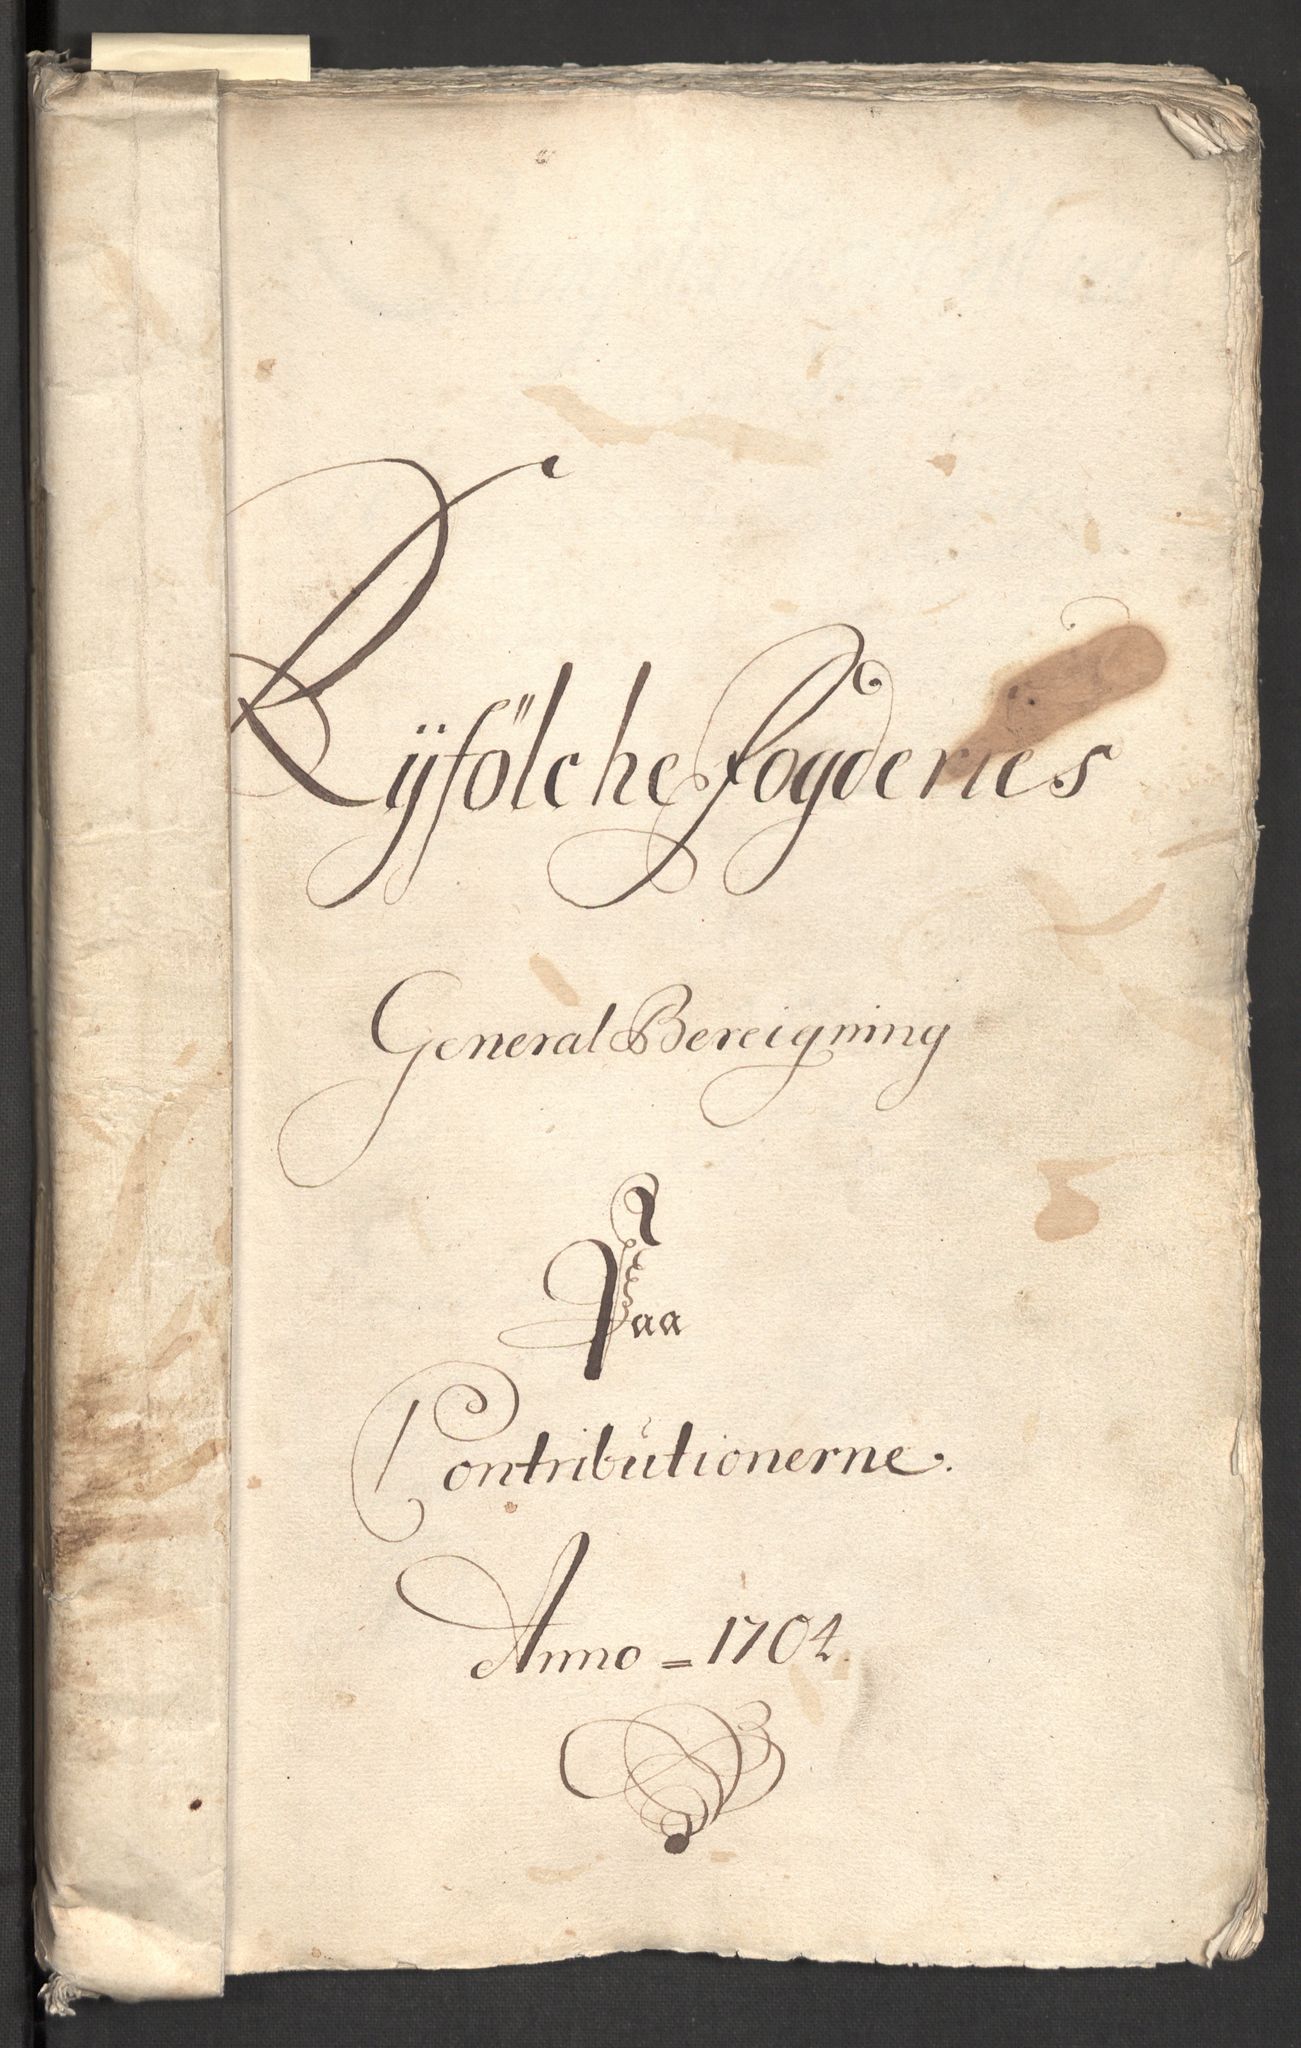 Ryfölche Fogderies
General Bereigning
Paa
Contributionerne.
Anno = 1704.